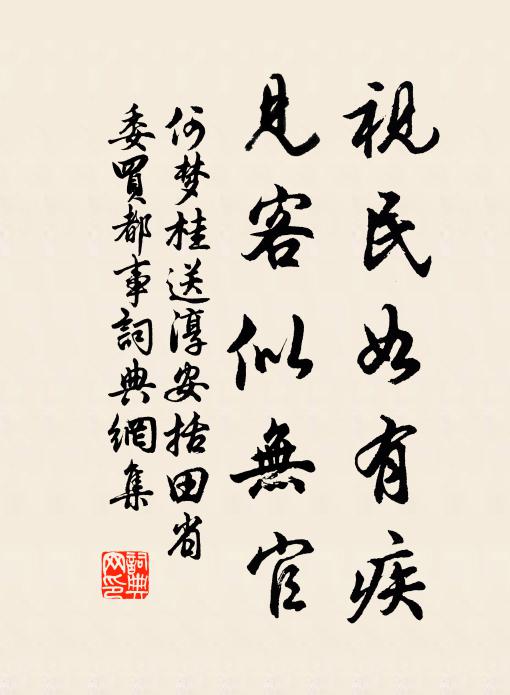 視民如有疾
見客似無官
何梦桂送淳安括田省
委買都事詞典網集
詞典网印